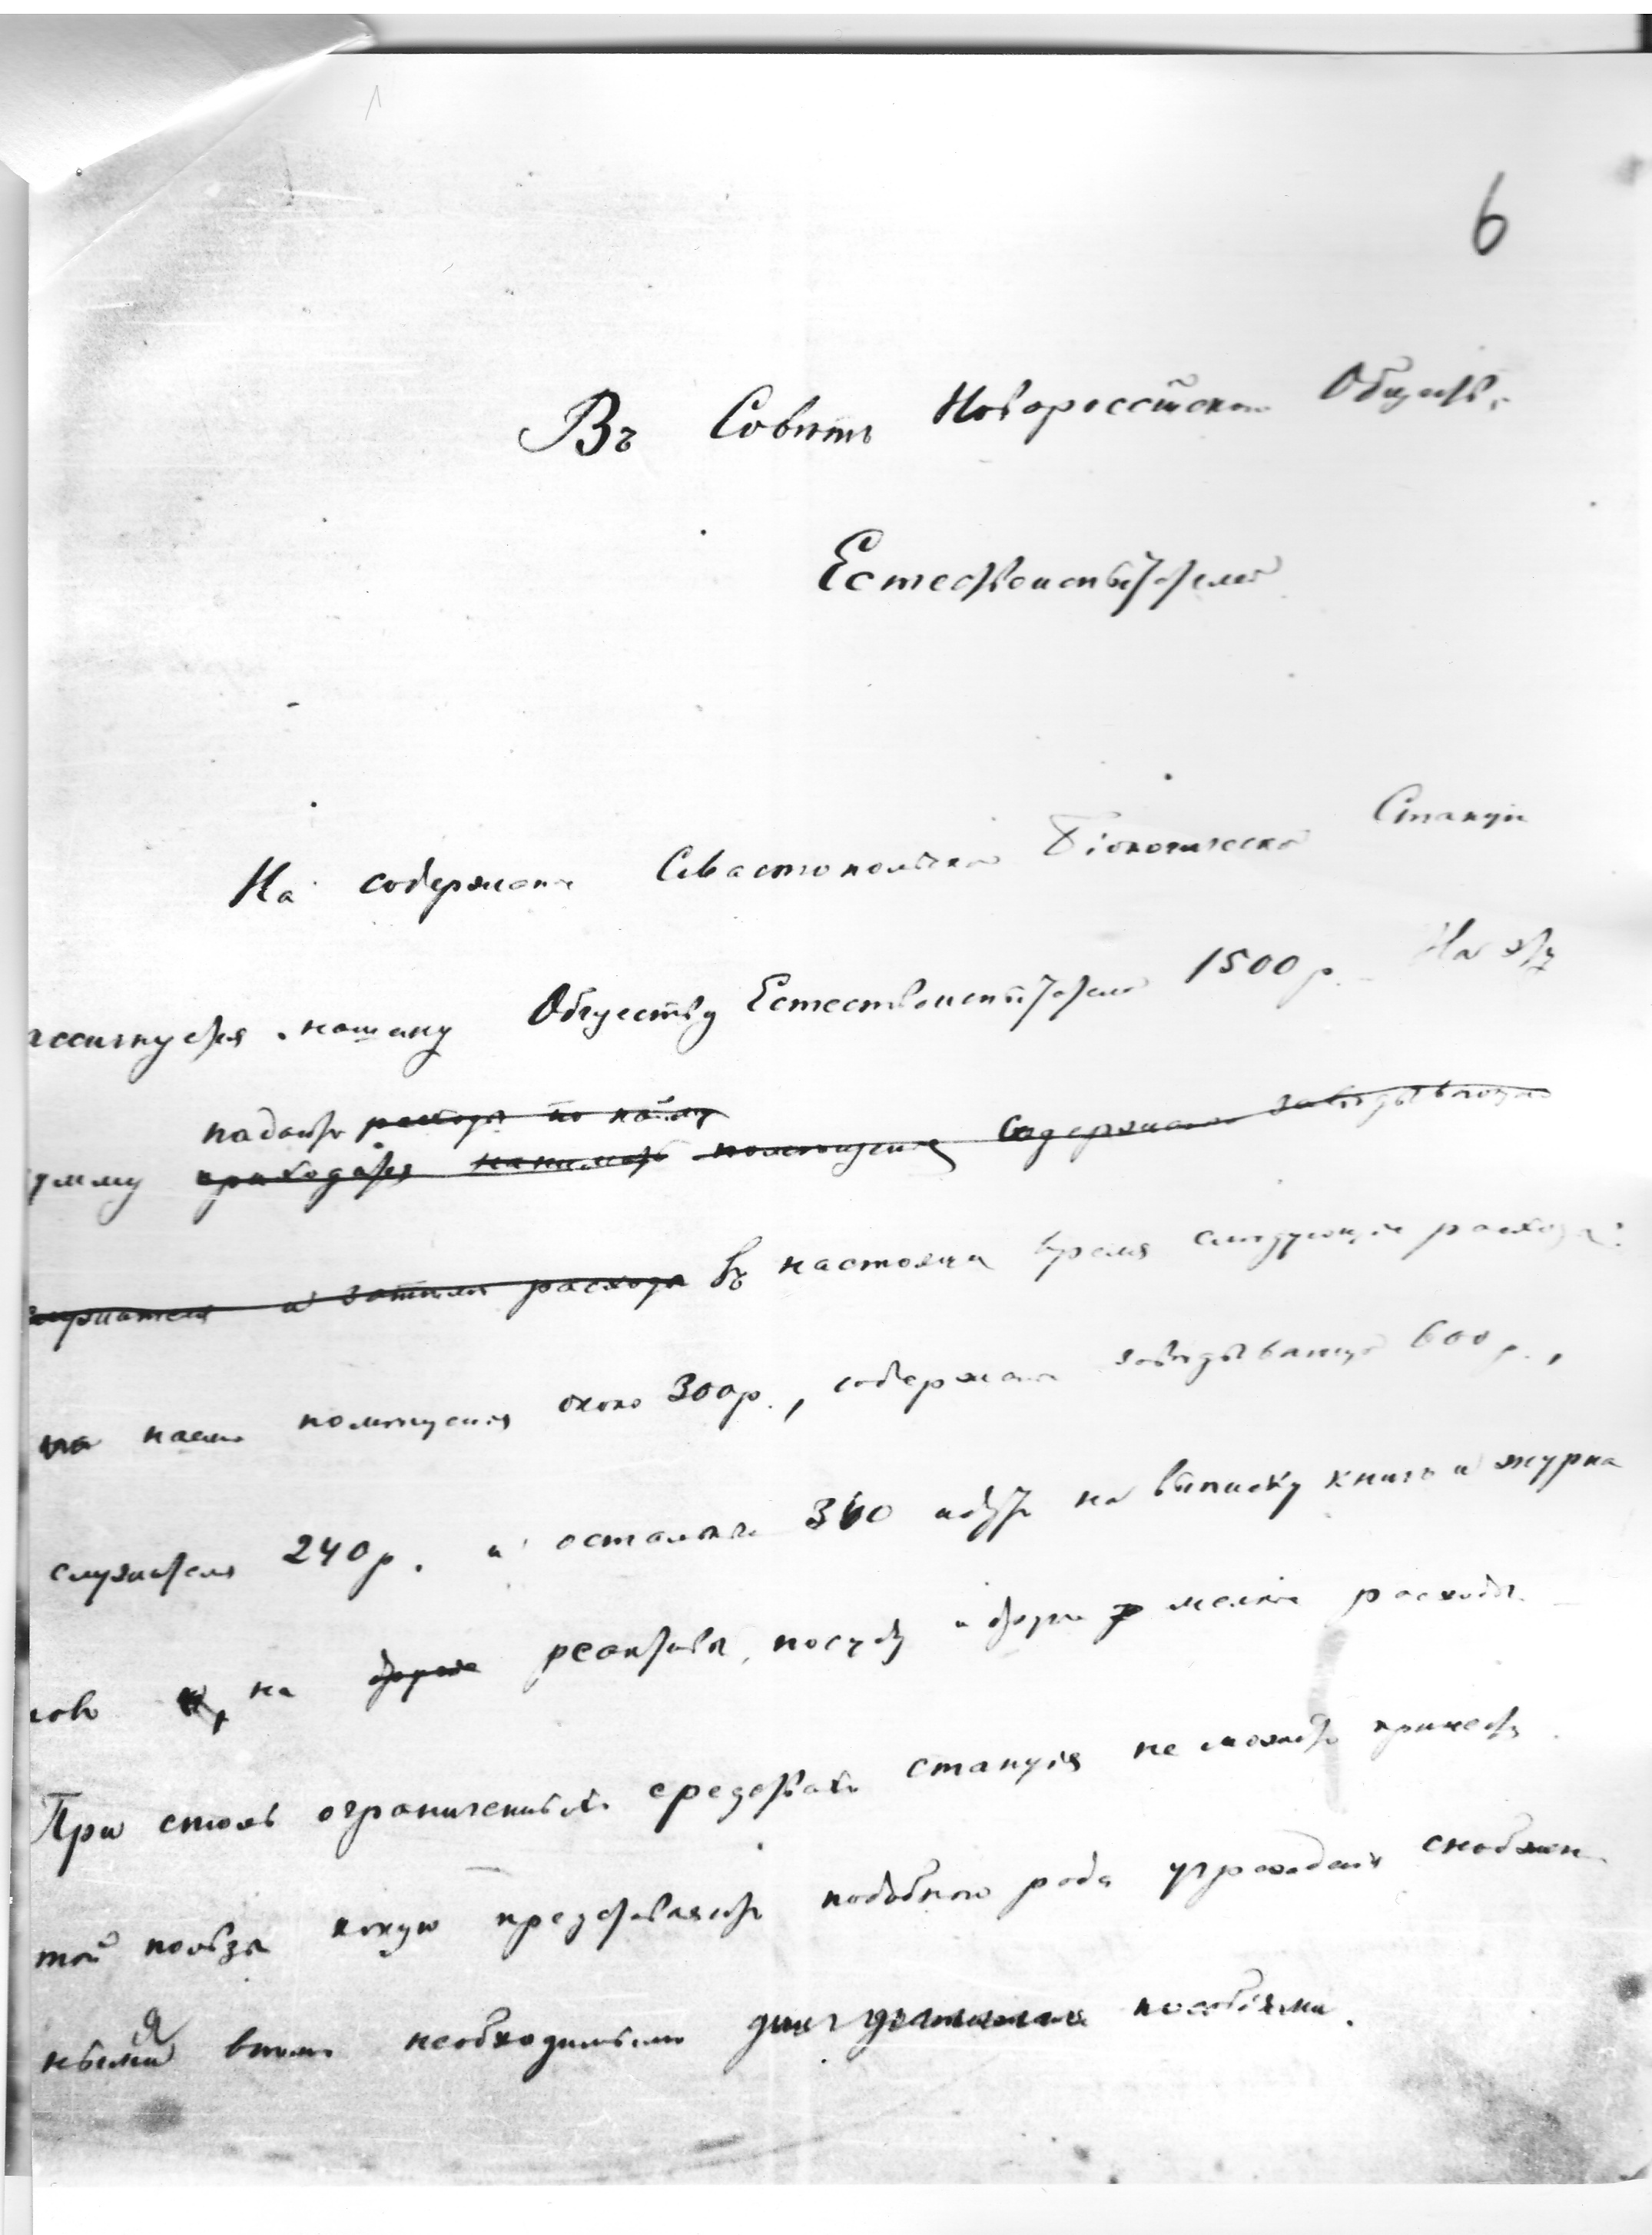 6
Въ Совѣтъ Новороссійскаго Обществ.
Естествоиспытателей
На содержаніе Севастопольской Біологической Станціи
ассигнуется нашему Обществу Естествоиспытателей 1500 р. На эту
падаетъ расходы по найму
сумму приходятся помѣщенія содержаніе завѣдывающаго
и затѣмъ расходы въ настоящее время слѣдующіе расходы:
на наемъ помѣщенія около 300 р., содержаніе завѣдывающаго 600 р.,
служителя 240 р. и остальные 360 идутъ на выписку книгъ и журна
ловъ на другіе реактивы, посуду и другіе мелкіе расходы.
При столь ограниченныхъ средствахъ станція не можетъ принести
той пользы какую представляетъ подобнаго рода учрежденія снабжен
ныя всѣми необходимыми для пособіями.